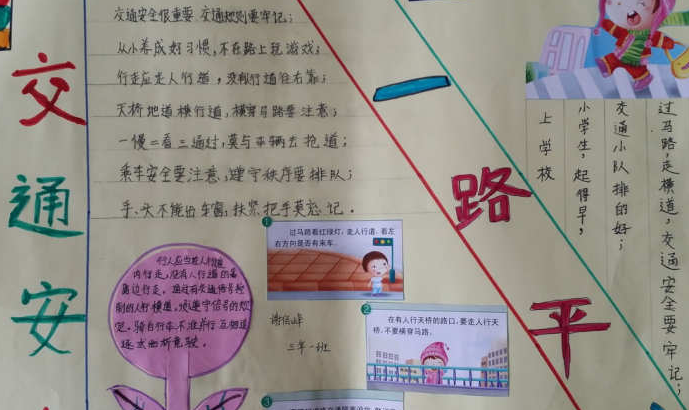 交通安全很重要 交通规则要牢记；
从小养成好习惯，不在路上玩游戏；
行走应走人行道，没有行道往右靠；
天桥地道横行道，横穿马路要注意；
一慢二看三通过，莫与车辆去抢道；
乘车安全要注意，遵守秩序要排队；
手、头不能出车窗，扶紧把手莫忘记。
交
通
安
一
路
平
小学生，起得早，
上学校
交通小队排的好；
过马路，走横道，交通安全要牢记；
1
过马路看红绿灯，走人行道，看左
右方向是否有来车。
2
在有人行天桥的路口，要走人行天
桥，不要横穿马路。
3
行人应当在人行道
内行走，没有人行道的靠
路边行走。通过有交通信号控
制的人行横道，须遵守信号的规
定。骑自行车不准并行 互相追
逐
三年一班